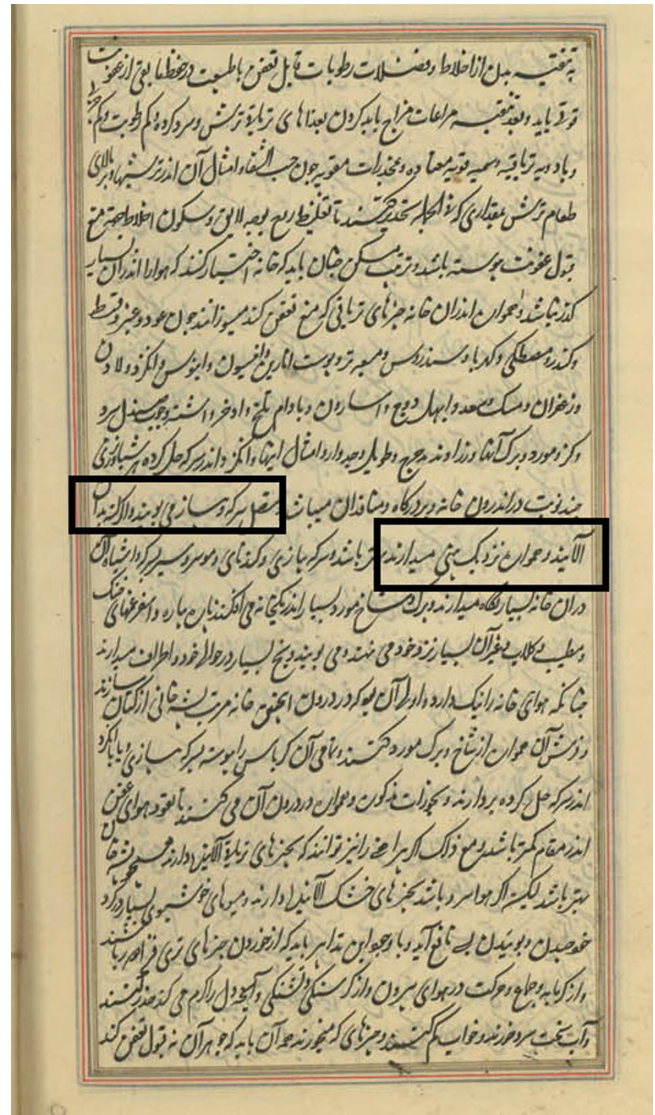 به تنقیه بدن از اخلاط و فضلات رطوبات قابل تعفن با طبیعت در حفظ مانعی از عفونت
و بعد تنقیه مراعات مزاج باید کردن بغذاهای تریاقی ترش و سرد کرده کم رطوبت و کم
و بادویه تریاقیه و سمیه قویه معتاده و مخدرات مقویه چون حب الشفا و امثال آن اندر ترشیها و بر بالای
طعام ترش بمقداری که فی الجمله تخدیر کنند تا تغلیظ ریح بوجه لایق و سکون اخلاط جهت منع
قبول عفونت پیوسته باشد و ترتیب مسکن چنان باید که خانه اختیار کنند که هوا را اندران بسیار
گذر نباشد و اندران خانه چیزهای تریاقی که منع تعفن کند میسوزانند چون عود و عنبر و قسط
و کندر و مصطکی و کهربا و سندروس و میعه تر و پوست انارین و افیون و انگزد و لادن
و زعفران و مشک و سعد و ابهل و وج و اسارون و بادام تلخ و اذخر و اشنه و چوب صندل سرو
و گز و مورد و برگ آنها و زراوند مدحرج و طویل و جدوار و امثال اینها و انگزد اندر سرکه حل کرده هر شباروزی
چند نوبت در اندرون خانه و بر درگاه و منافذ آن میپاشند و بصل سرکه و پیاز می بویند و اگر که بدان
آلایند و نزدیک بینی میدارند بهتر باشد و سرکه پیازی و گندنای و موسیر و سیر سرکه و اشباه آن
دران خانه بسیار نگاه میدارند و برگ و شاخ مورد بسیار اندر یکخانه می افکنند
و مطیب بگلاب و غیر آن بسیار نزد خود می نهند و می بویند و یخ بسیار در حوالی خود و اطراف میدارند
چنانکه هوای خانه را نیک دارد و اولی آن بود که در درون اینچنین خانه مرتب پشه خانی از کتان سازند
و فرش آن از شاخ و برگ مورد کنند و تمامی آن کرباس را پیوسته بسرکه پیازی و یا بانگزد
اندر سرکه حل کرده بردارند و بخورات مذکور در درون آن می کنند تا نفوذ هوای عفن
اندر مقام کمتر باشد و مع ذلک اگر پیراهن را نیز توانند که بچیزهای تریاقی آلاییده دارند
بهتر باشد لیکن اگر هوا سرد باشد بچیزهای خشک آلاییده دارند و میوهای خوشبوی بسیار در گرد
خود چیدن و بوییدن بسی نافع آید و با وجود این تدابیر باید که از خوردن چیزهای تری فزا
و از گرمابه و جماع و حرکت در هوای بیرون و از گرسنگی و تشنگی و آنچه دل را گرم می کند حذر کنند
و آب سخت سرد خورند و خواب کم کنند و چیزهای که میخورند باید که جوهر آن نه قبول تعفن کند